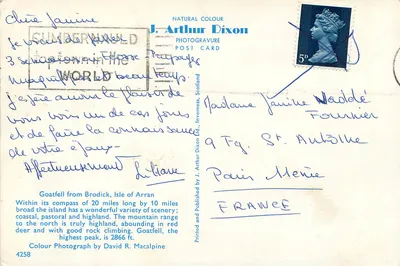 Chère Janine
NATURAL COLOUR
J. Arthur Dixon
PHOTOGRAVURE
POST CARD
CUMBERNAULD
WORLD
5D
3 semaines en Ecosse. Paysages
magnifiques et beau temps.
j'espère avoir le plaisir de
vous voir un de ces jours
et de faire la connaissance
de votre époux.
Affectueusement
Liliane
Madame Janine
Fournier
9 Fg. St. Antoine
Paris
FRANCE
Printed and Published by J. Arthur Dixon Ltd., Inverness, Scotland
Goatfell from Brodick, Isle of Arran
Within its compass of 20 miles long by 10 miles
broad the island has a wonderful variety of scenery;
coastal, pastoral and highland. The mountain range
to the north is truly highland, abounding in red
deer and with good rock climbing. Goatfell, the
highest peak, is 2866 ft.
Colour Photograph by David R. Macalpine
4258